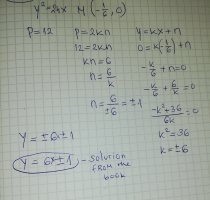 y²=24x M (-1/6, 0)
P=12 P=2kn y=kx+n
12=2kn 0=k(-1/6)+n
kn=6 -k/6+n=0
n=6/k -k/6+6/k=0
n=6/±6=±1 -k²+36/6k=0
k²=36
k=±6
y=±6x±1
y=6x±1 - solution from the book